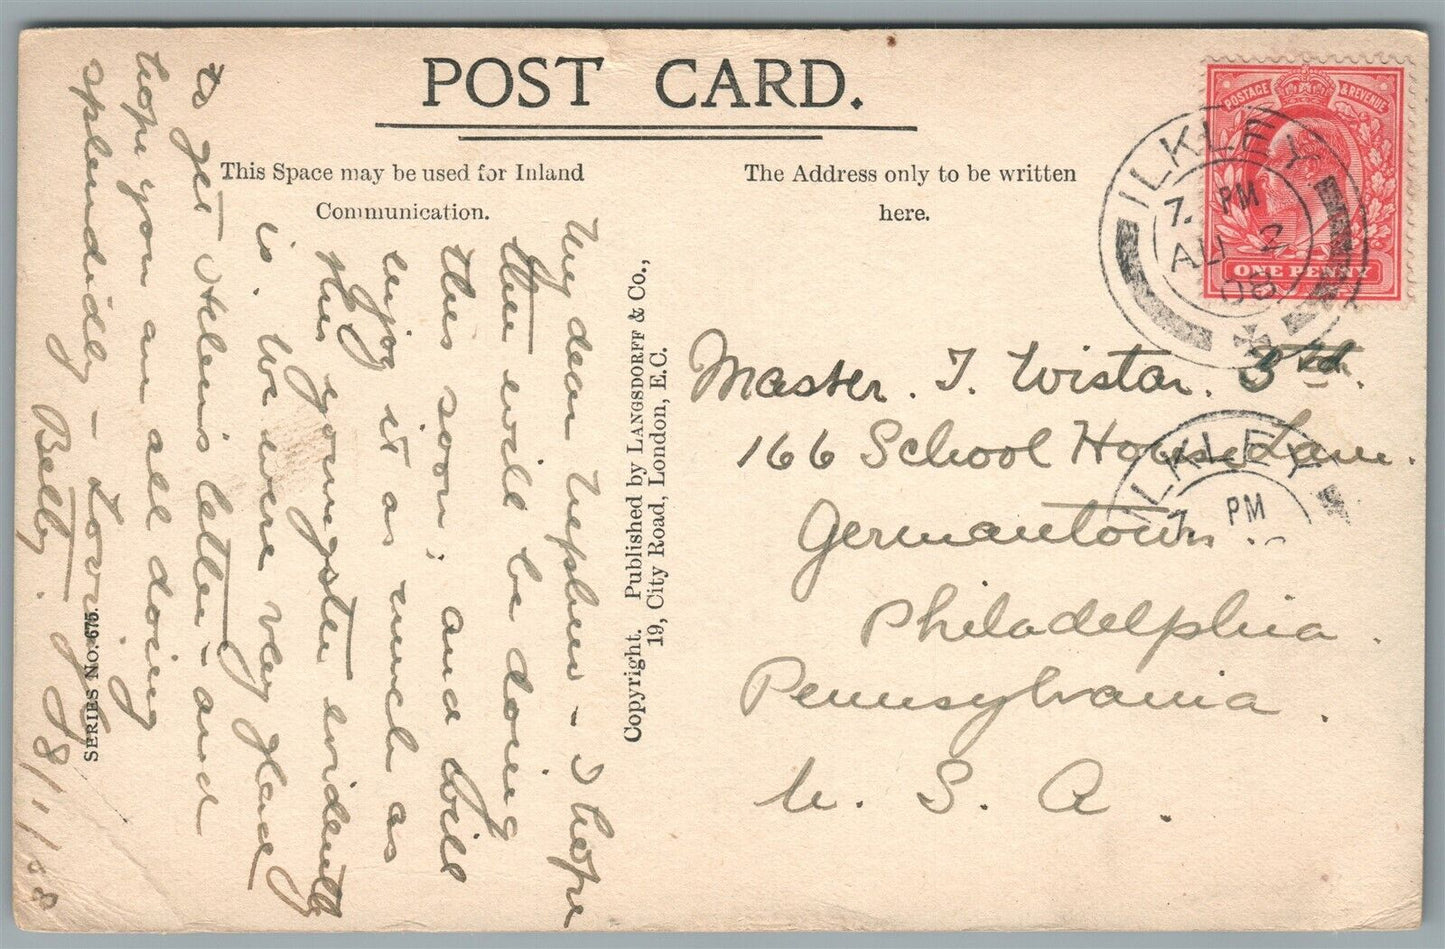 POST CARD.
This Space may be used for Inland
Communication.
The Address only to be written
here.
POSTAGE & REVENUE
ONE PENNY
ILKLEY
7. PM
AU 2
08
Master. T. Wistar. 3rd.
166 School House Lane.
Germantown.
Philadelphia.
Pennsylvania.
U. S. A.
ILKLEY
7. PM
Copyright. Published by LANGSDORFF & Co.,
19, City Road, London, E.C.
SERIES No. 675.
My dear Nephew - I hope
you will be doing
this soon, and will
enjoy it as much as
this youngster evidently
is. We were very glad
to get Helens letter - and
hope you are all doing
splendidly - Lovingly
Betty. 8/1/08